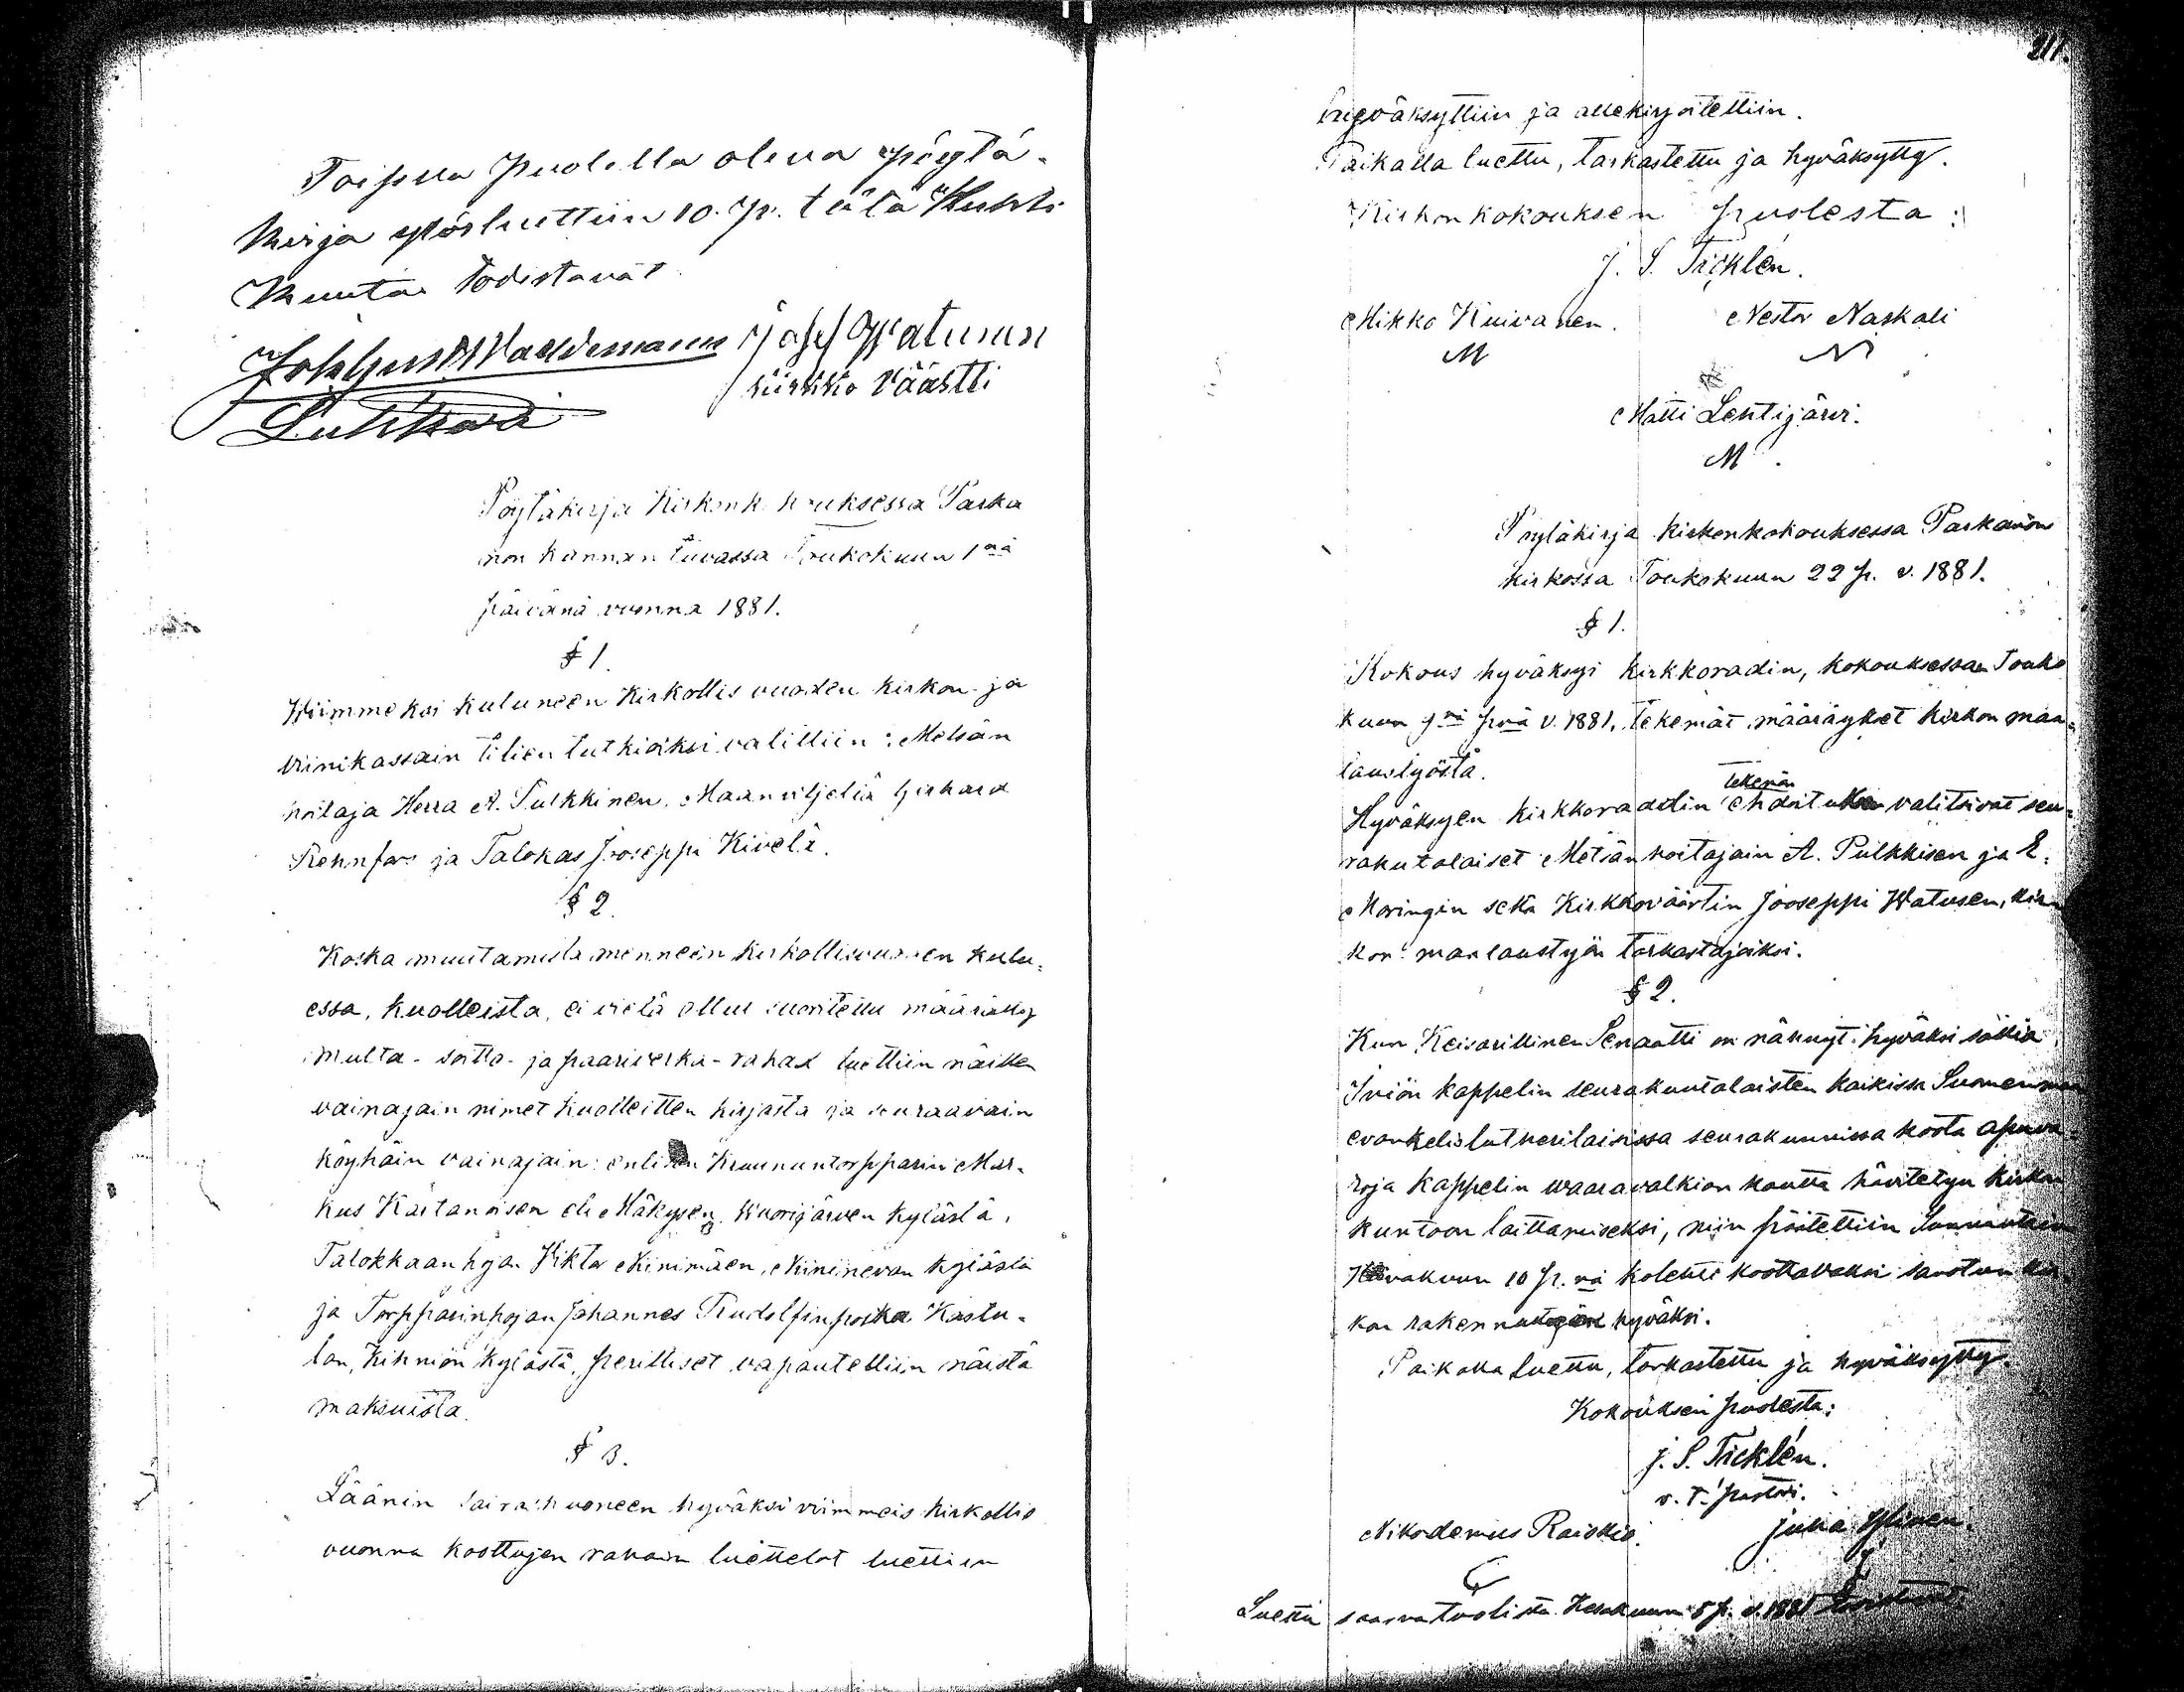 Toisella puolella oleva pöytä-
kirja ylösluettiin 10. p. tätä Huhti
kuuta todistavat
Josef Watunen
kirkko väästti
Pöytäkirja Kirkonkokouksessa Parka
non kunnan tuvassa Toukokuun 1nä
päivänä vuonna 1881.
§ 1.
Wiimmeksi kuluneen Kirkollis vuoden kirkon- ja
viinikassain tilien tutkiaksi valittiin: Metsän
hoitaja Herra A. Pulkkinen, Maanviljeliä
Rennfors ja Talokas Jooseppi Kivelä.
§ 2.
Koska muutamista menneen kirkollisvuoden kulu-
essa, kuolleista, ei vielä ollut suoritettu määrätty
multa- soitto- ja paariverka-rahat luettiin näitten
vainajain nimet kuolleitten kirjasta ja seuraavain
köyhäin vainajain: entisen Kruununtorpparin Mar-
kus Kaitanoisen eli Mäkysen, Wuorijärven kylästä,
Talokkaanpojan Viktor Niinimäen, Niininevan kylästä
ja Torpparinpojan Johannes Rudolfinpoika Kastu-
lan, Kihniön kylästä, perilliset vapautettiin näistä
maksuista.
§ 3.
Läänin sairashuoneen hyväksi viimmeis kirkollis
vuonna koottujen rahain luettelot luettiin
211.
hyväksyttiin ja allekirjoitettiin.
Paikalla luettu, tarkastettu ja hyväksytty.
Kirkonkokouksen puolesta:
J. S. Ticklén.
Mikko Kuivanen. Nestor Naskali
M N
Matti Lentijärvi.
M.
Pöytäkirja kirkonkokouksessa Parkanon
kirkossa Toukokuun 22 p. v. 1881.
§ 1.
Kokous hyväksyi kirkkoradin, kokouksessaan Touko
kuun 9nä pnä v. 1881, tekemät määräykset kirkon maa-
laustyöstä.
tekemän
Hyväksyen kirkkoraadin ehdoituksen valitsivat seu-
rakutalaiset Metsänhoitajain A. Pulkkisen ja E.
Moringin sekä Kirkkoväärtin Jooseppi Watusen, kir-
kon maalaustyön tarkastajaksi.
§ 2.
Kun Keisarillinen Senaatti on nähnyt hyväksi sallia
kappelin seurakuntalaisten kaikissa Suomenmaan
evankelislutherilaisissa seurakunnissa koota apuva-
roja kappelin waaravalkian kautta hävitetyn kirkon
kuntoon laittamiseksi, niin päätettiin Sunnuntain
Heinäkuun 10 p. nä kolehti koottavaksi sanotun kir-
kon rakennustyön hyväksi.
Paikalla luettu, tarkastettu ja hyväksytty.
Kokouksen puolesta:
J. S. Ticklén.
v. t. pastori.
Nikodemus Raiskio. Juha Ylinen.
Luettu saarnatuolista Kesäkuun 5 p. v. 1881